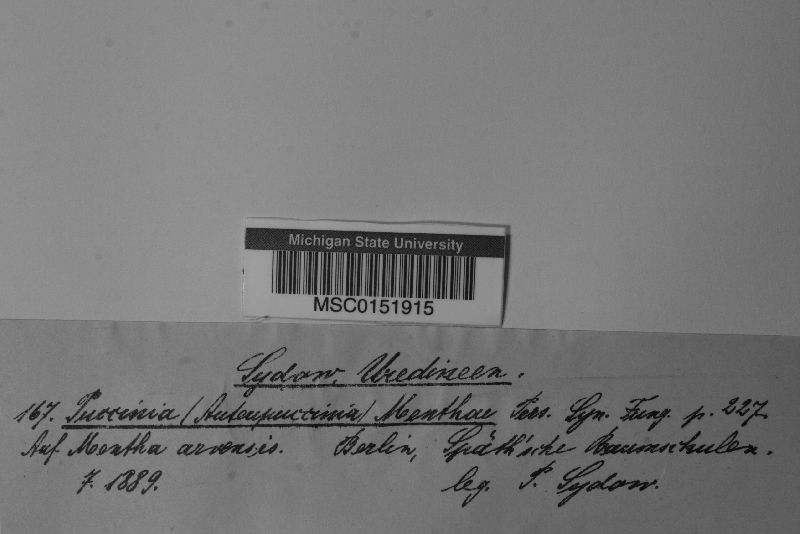 Michigan State University
MSC0151915
Sydow, Uredineen.
167. Puccinia (Auteupuccinia) Menthae Pers. Syn. Fung. p. 227.
Auf Mentha arvensis. Berlin, Späth'sche Baumschulen.
7. 1889. leg. P. Sydow.